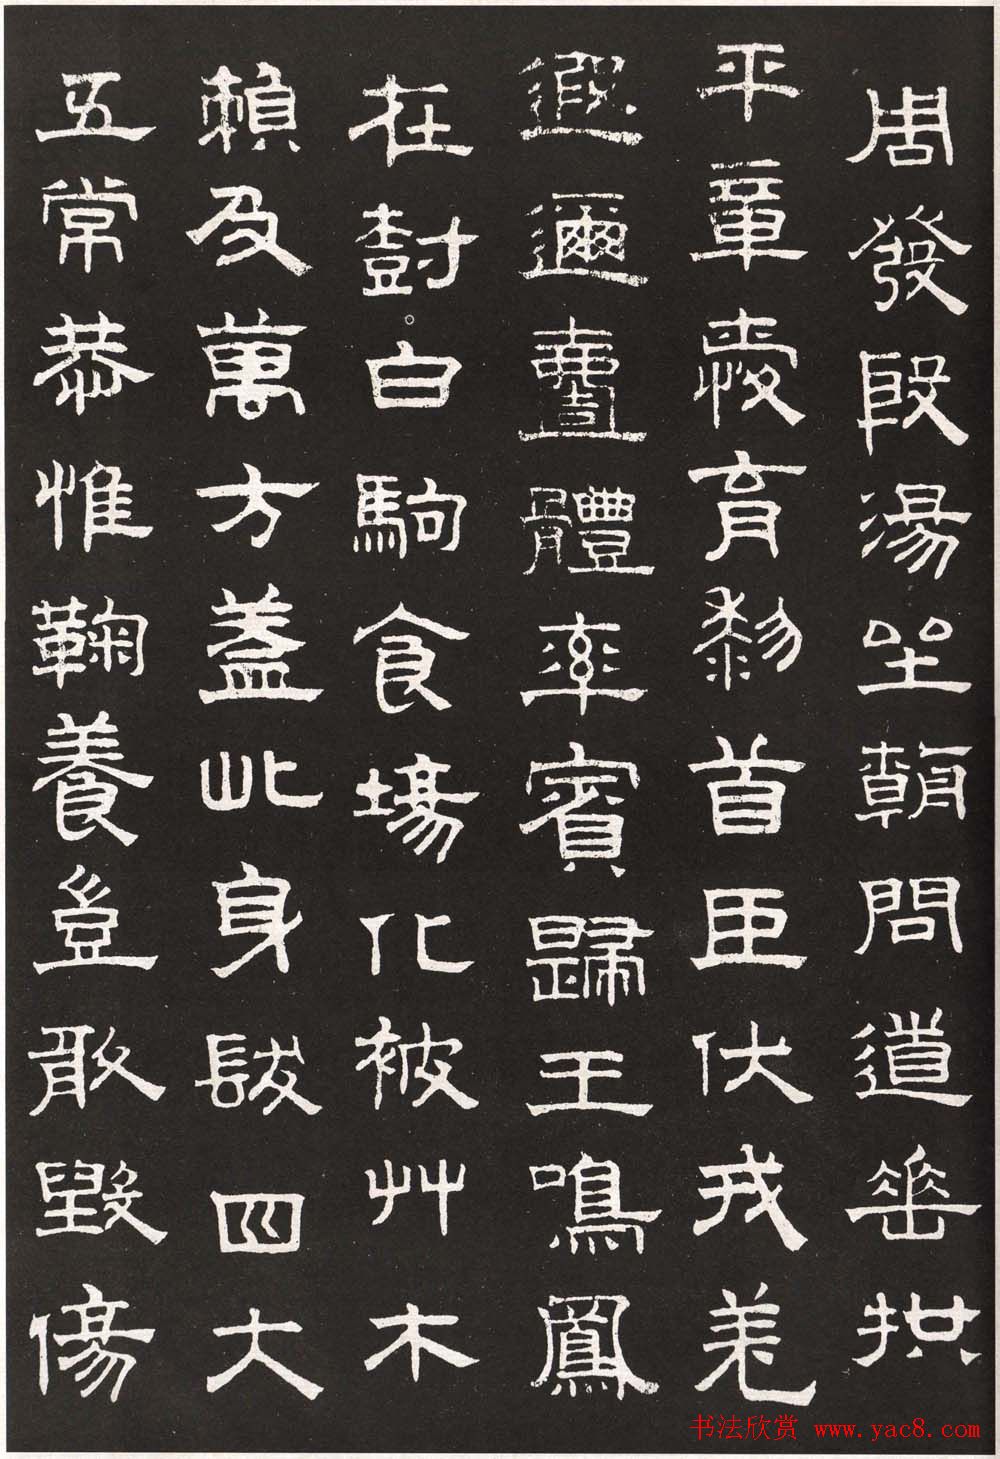 周發殷湯坐朝問道垂拱
平章愛育黎首臣伏戎羌
遐邇壹體率賓歸王鳴鳳
在樹白駒食場化被艸木
賴及萬方蓋此身髮四大
五常恭惟鞠養豈敢毀傷
书法欣赏 www.yac8.com